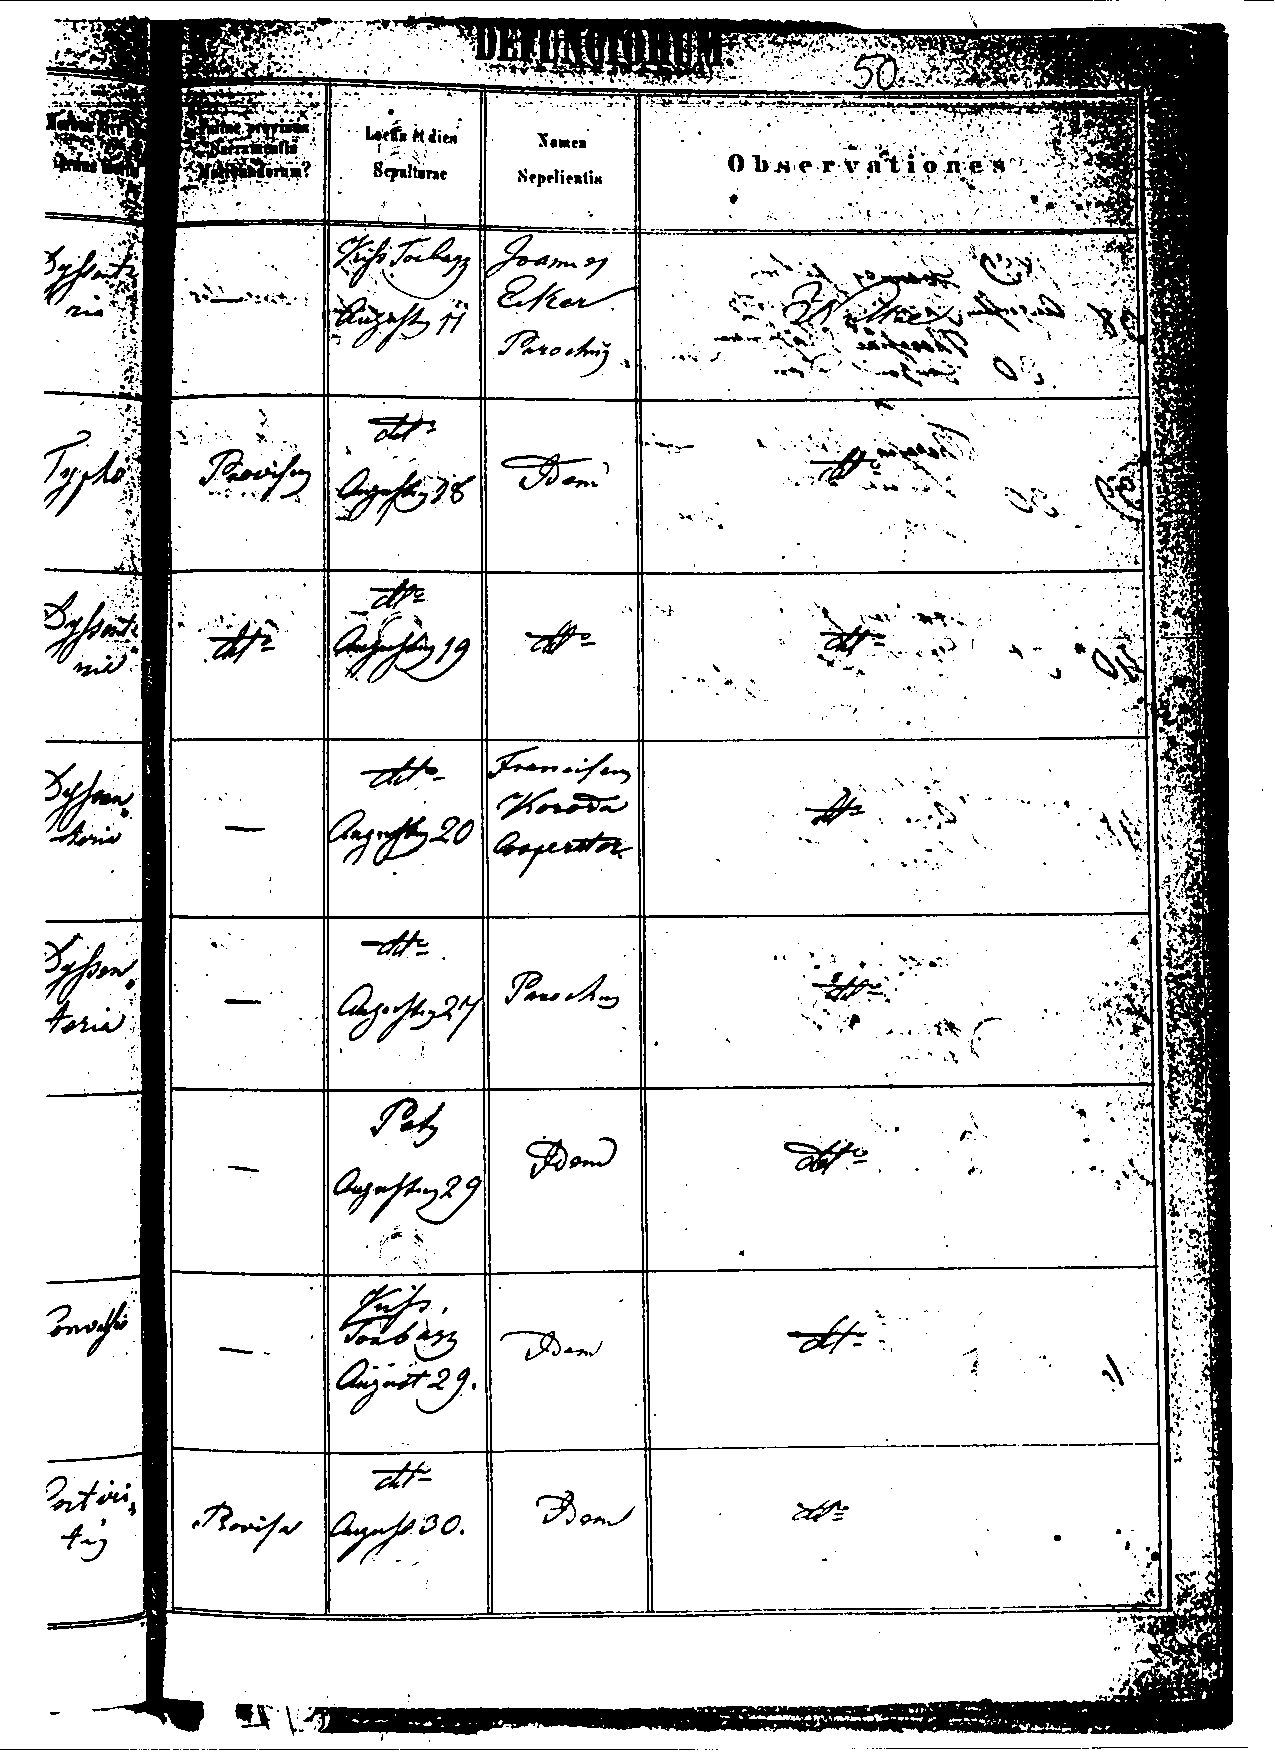 DEFUNCTORUM.
50
Locus et dies
Sepulturae
Nomen
Sepelientis
Observationes
Dyssente
ria
—
Kiss Torbágy
August 11
Joannes
Eker
Parochus
Typho
Provisus
dtto
Augustus 28
Idem
dtto
Dyssente
ria
dtto
dtto
Augustus 19
dtto
dtto
Dyssen
teria
—
dtto
Augustus 20
Franciscus
Koroda
Cooperator
dtto
Dyssen
teria
—
dtto
Augustus 27
Parochus
dtto
—
Paty
Augustus 29
Idem
dtto
—
Kiss
Torbágy
August 29.
Idem
dtto
Provisa
dtto
August 30.
Idem
dtto